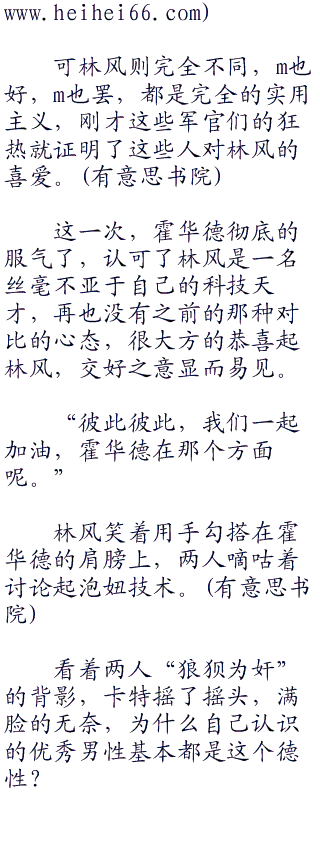 www.heihei66.com)
可林风则完全不同，m也
好，m也罢，都是完全的实用
主义，刚才这些军官们的狂
热就证明了这些人对林风的
喜爱。(有意思书院)
这一次，霍华德彻底的
服气了，认可了林风是一名
丝毫不亚于自己的科技天
才，再也没有之前的那种对
比的心态，很大方的恭喜起
林风，交好之意显而易见。
“彼此彼此，我们一起
加油，霍华德在那个方面
呢。”
林风笑着用手勾搭在霍
华德的肩膀上，两人嘀咕着
讨论起泡妞技术。(有意思书
院)
看着两人“狼狈为奸”
的背影，卡特摇了摇头，满
脸的无奈，为什么自己认识
的优秀男性基本都是这个德
性？